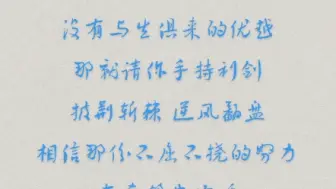 没有与生俱来的优越
那就请你手持利剑
披荆斩棘 逆风翻盘
相信那份不屈不挠的努力